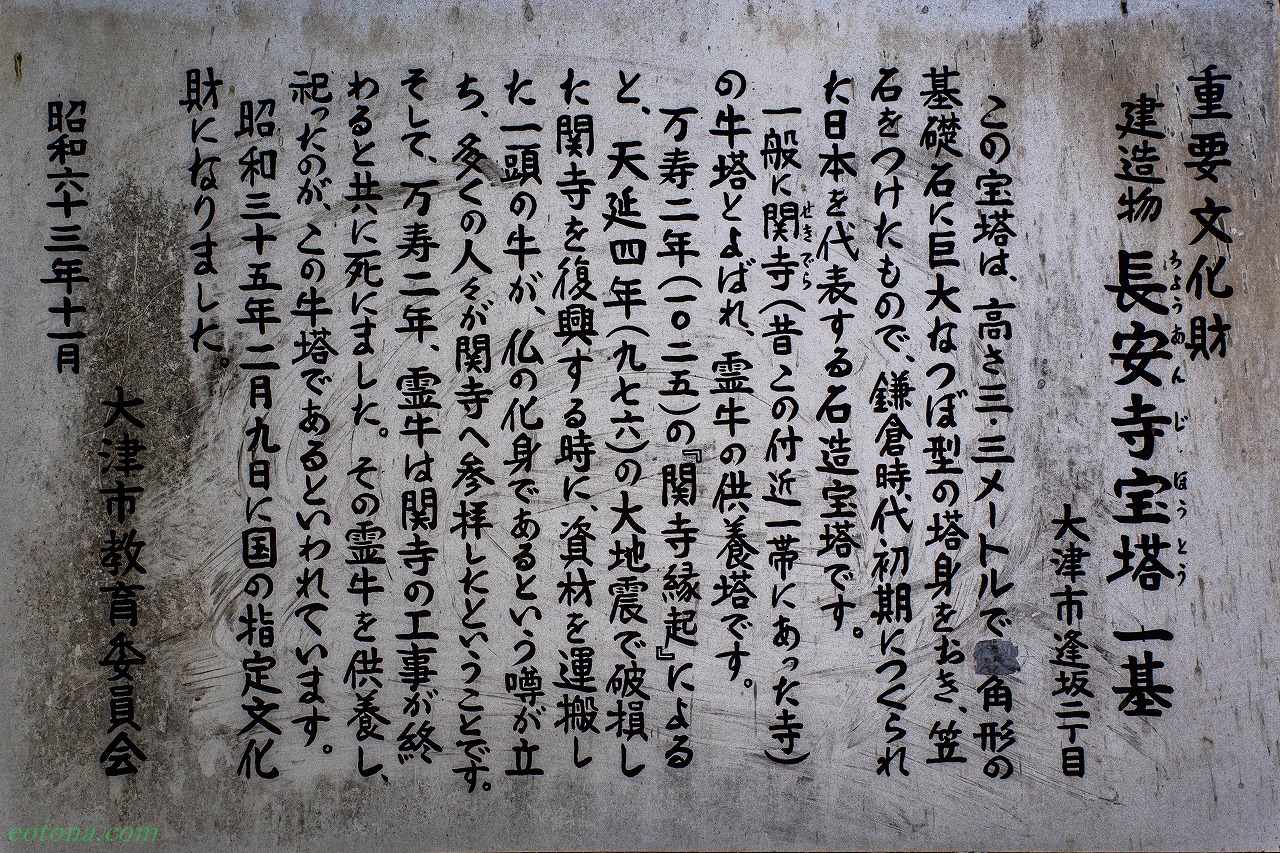 重要文化財
建造物 長安寺宝塔 一基
ちょうあんじ ほうとう
大津市逢坂二丁目
この宝塔は、高さ三・三メートルで 角形の
基礎石に巨大なつぼ型の塔身をおき、笠
石をつけたもので、鎌倉時代初期につくられ
た日本を代表する石造宝塔です。
一般に関寺(昔この付近一帯にあった寺)
せきでら
の牛塔とよばれ、霊牛の供養塔です。
万寿二年(一〇二五)の『関寺縁起』による
と、天延四年(九七六)の大地震で破損し
た関寺を復興する時に、資材を運搬し
た一頭の牛が、仏の化身であるという噂が立
ち、多くの人々が関寺へ参拝したということです。
そして、万寿二年、霊牛は関寺の工事が終
わると共に死にました。その霊牛を供養し、
祀ったのが、この牛塔であるといわれています。
昭和三十五年二月九日に国の指定文化
財になりました。
大津市教育委員会
昭和六十三年十一月
eotona.com